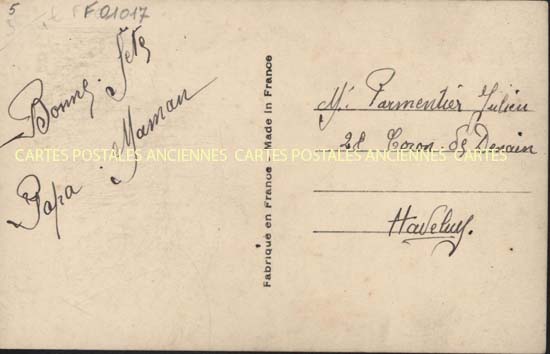 5
F01017
Bonne fête
Papa Maman
Fabriqué en France - Made in France
Mr Parmentier Julien
28 Coron de Denain
Haveluy
CARTES POSTALES ANCIENNES CARTES POSTALES ANCIENNES CARTES